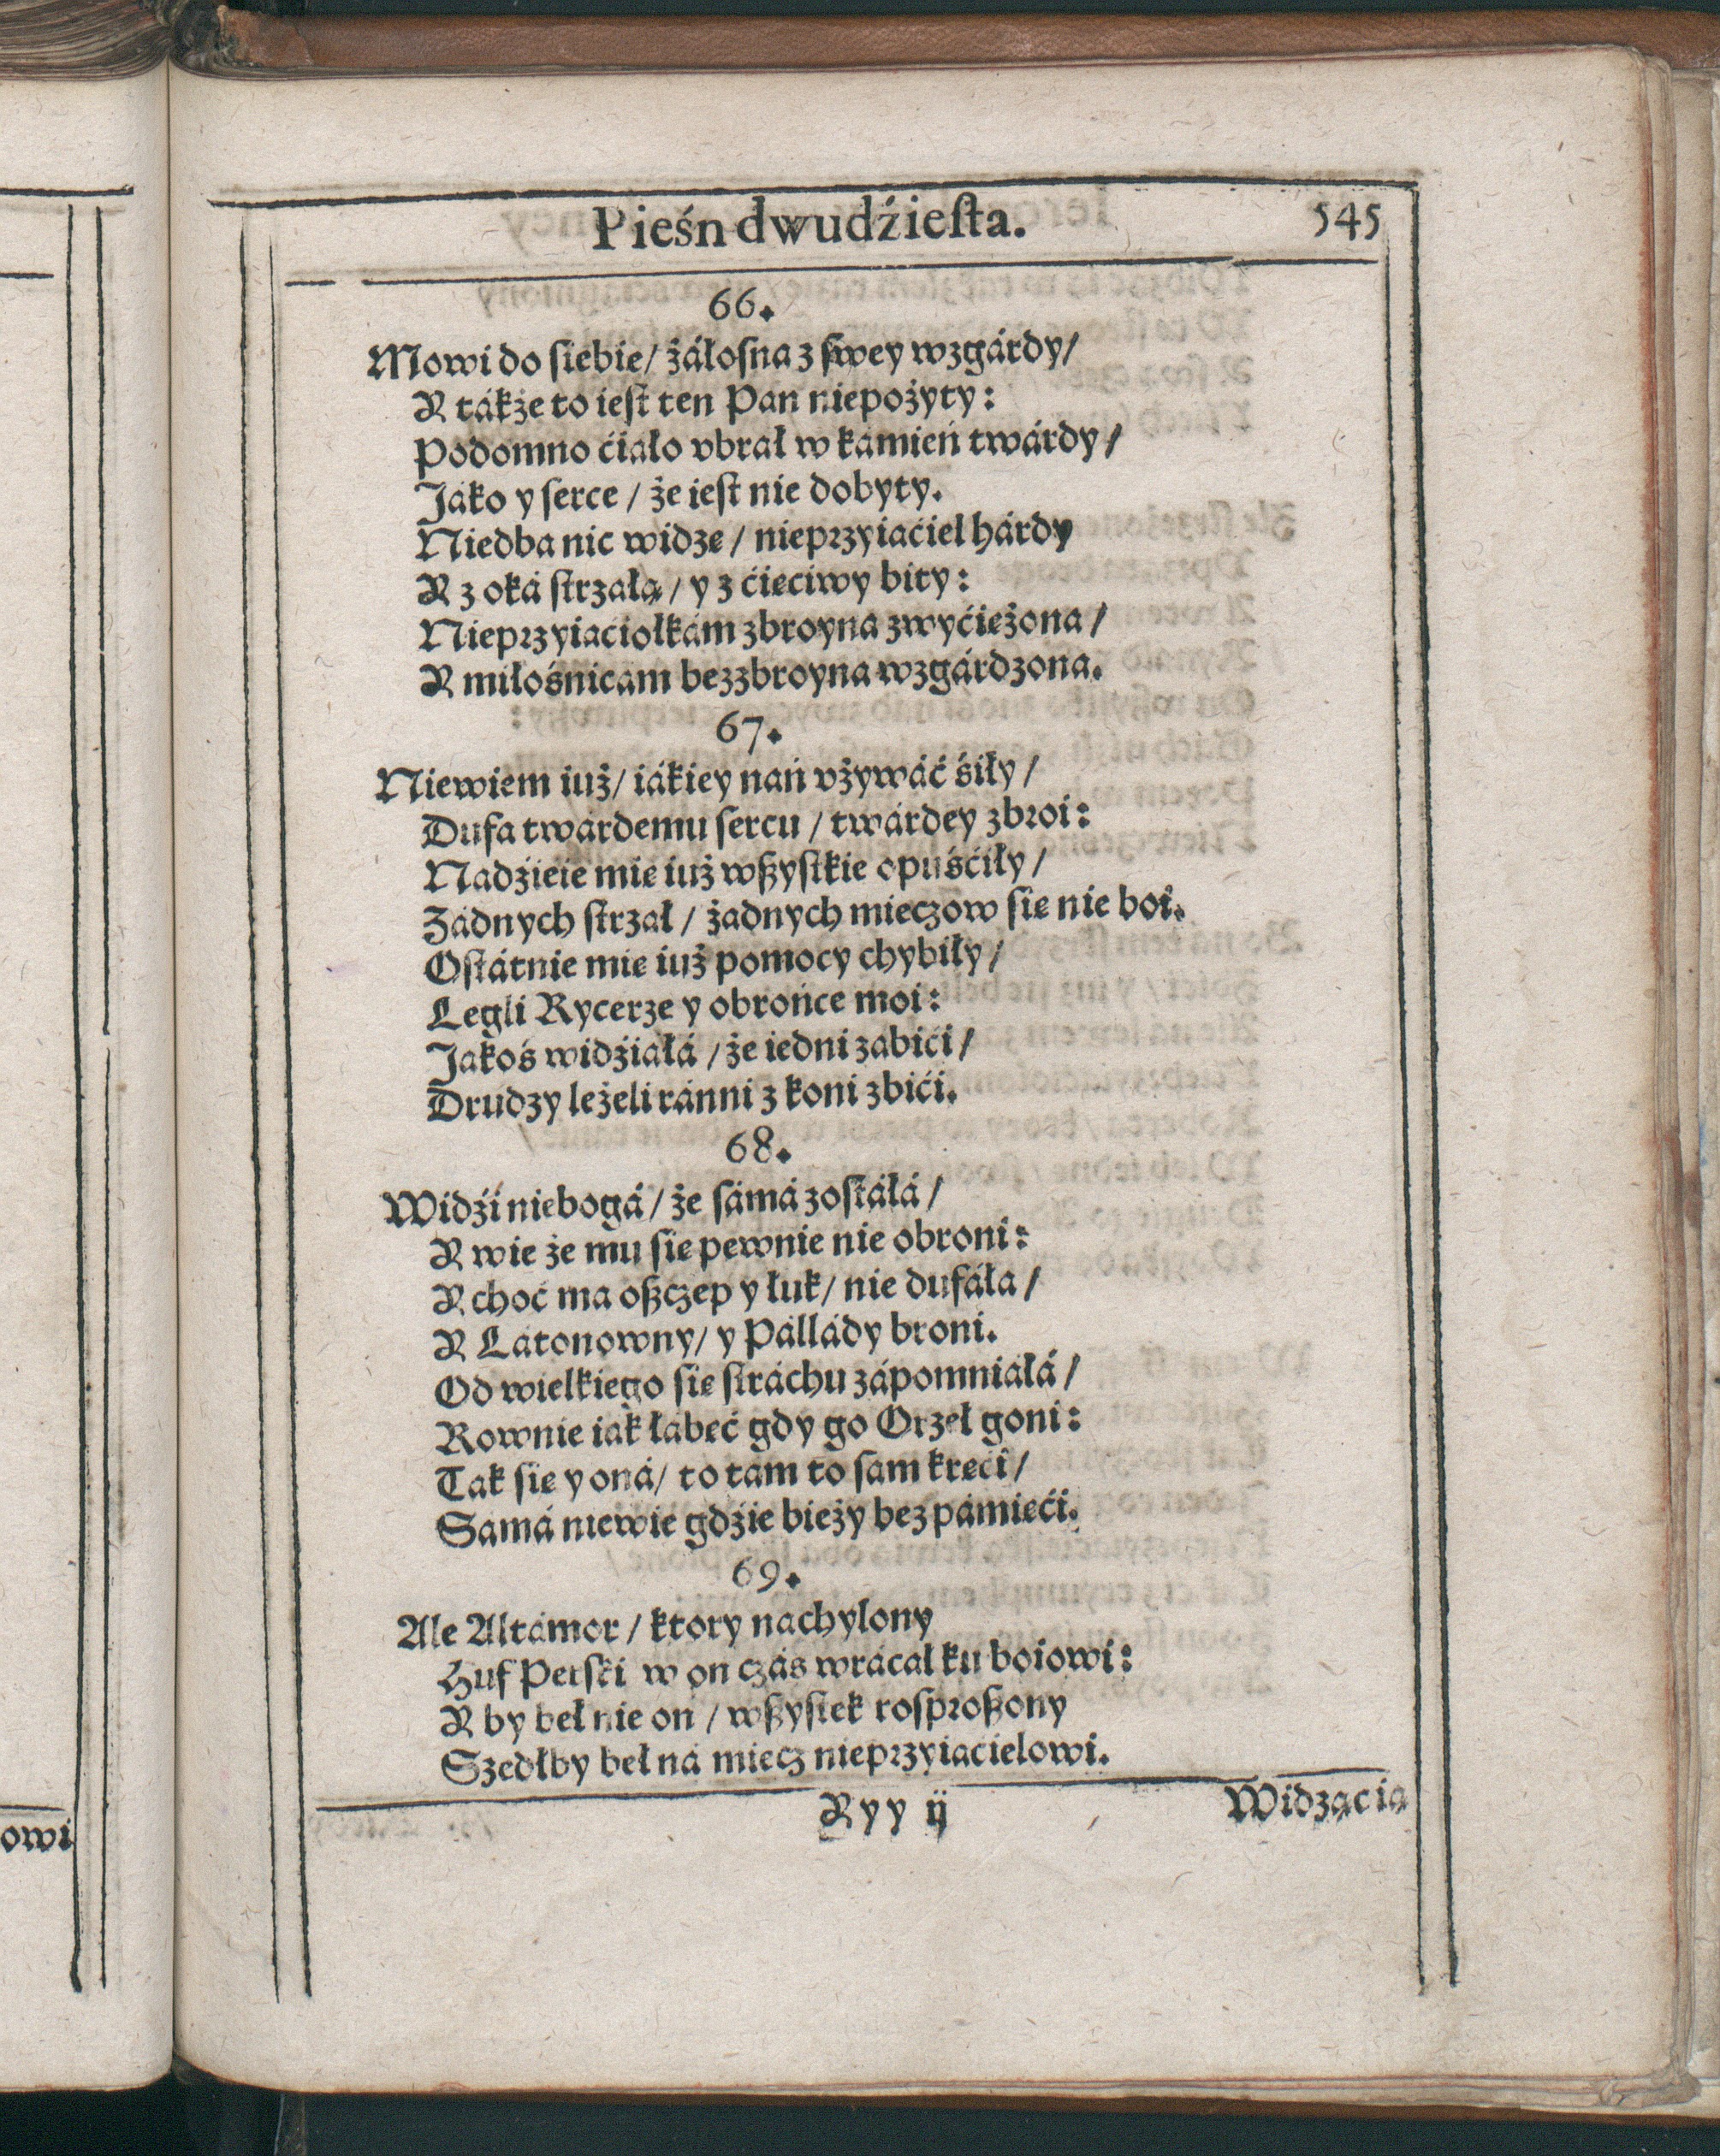 Pieśn dwudźieſta. 545
66.
Mowi do ſiebie/ żáłoſna z ſwey wzgárdy/
A tákże to ieſt ten Pan niepożyty:
Podomno ćiáło vbrał w kámień twárdy/
Jáko y ſerce / że ieſt nie dobyty.
Niedba nic widzę / nieprzyiaćiel hárdy
A z oká ſtrzałą / y z ćięciwy bity:
Nieprzyiaciołkám zbroyna zwyćiężona /
A miłośnicam bezzbroyna wzgárdzona.
67.
Niewiem iuż/ iákiey nań vżywáć śiły /
Dufa twárdemu ſercu / twárdey zbroi:
Nadźieie mię iuż wßyſtkie opuśćiły /
Żadnych ſtrzał / żadnych mieczow ſię nie boi.
Oſtátnie mię iuż pomocy chybiły /
Legli Rycerze y obrońce moi:
Jakoś widźiáłá / że iedni zabići /
Drudzy leżeli ránni z koni zbići.
68.
Widźi niebogá / że ſámá zoſtáłá /
A wie że mu ſię pewnie nie obroni:
A choć ma oßczep y łuk/ nie dufáła /
A Látonowny/ y Pállády broni.
Od wielkiego ſię ſtráchu zápomniáłá /
Rownie iák łábęć gdy go Orzeł goni:
Ták ſię y oná/ to tám to ſám kręći /
Sámá niewie gdźie bieży bez pámięći.
69.
Ale Altámor / ktory nachylony
Huf Perſki w on czás wrácał ku boiowi:
A by beł nie on / wßyſtek roſproßony
Szedłby beł ná miecz nieprzyiacielowi.
Ayy ij Widzącią
owi